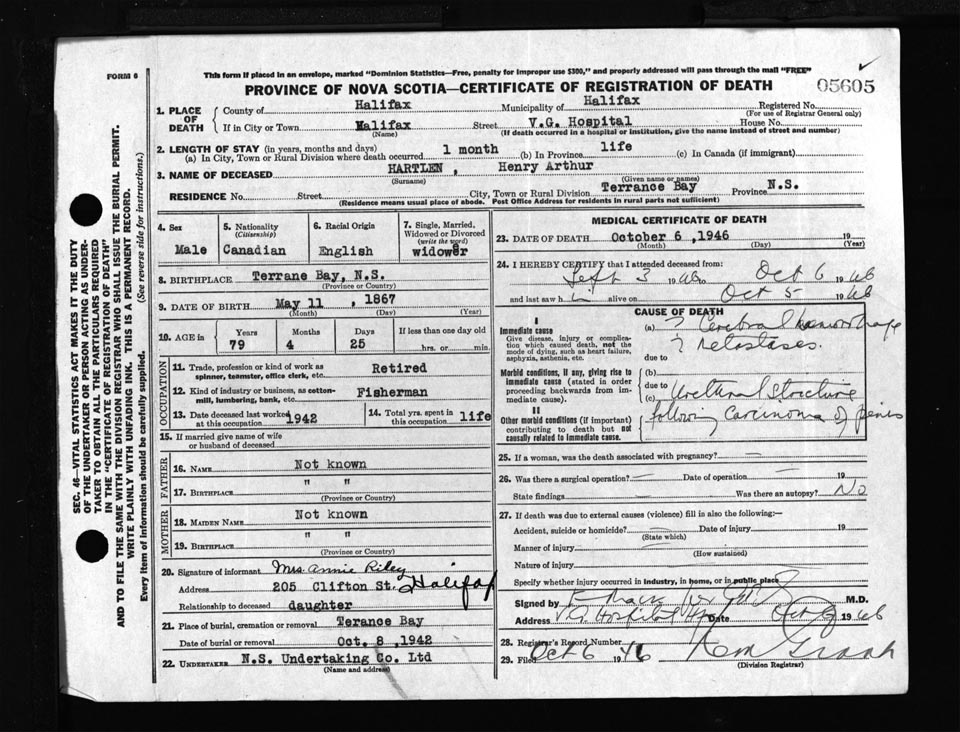 FORM 6
This form if placed in an envelope, marked "Dominion Statistics—Free, penalty for improper use $300," and properly addressed will pass through the mail "FREE"
PROVINCE OF NOVA SCOTIA—CERTIFICATE OF REGISTRATION OF DEATH
05605
1. PLACE OF DEATH
County of Halifax Municipality of Halifax Registered No.
(For use of Registrar General only)
If in City or Town Halifax Street V.G. Hospital House No.
(Name) (If death occurred in a hospital or institution, give the name instead of street and number)
2. LENGTH OF STAY (in years, months and days)
(a) In City, Town or Rural Division where death occurred 1 month (b) In Province life (c) In Canada (if immigrant)
3. NAME OF DECEASED HARTLEN, Henry Arthur
(Surname) (Given name or names)
RESIDENCE No. Street City, Town or Rural Division Terrance Bay Province N.S.
(Residence means usual place of abode. Post Office Address for residents in rural parts not sufficient)
SEC. 46—VITAL STATISTICS ACT MAKES IT THE DUTY
OF THE UNDERTAKER OR PERSON ACTING AS UNDER-
TAKER TO OBTAIN ALL THE PARTICULARS REQUIRED
IN THE "CERTIFICATE OF REGISTRATION OF DEATH"
AND TO FILE THE SAME WITH THE DIVISION REGISTRAR WHO SHALL ISSUE THE BURIAL PERMIT.
WRITE PLAINLY WITH UNFADING INK. THIS IS A PERMANENT RECORD.
Every item of information should be carefully supplied. (See reverse side for instructions.)
4. Sex
Male
5. Nationality
(Citizenship)
Canadian
6. Racial Origin
English
7. Single, Married,
Widowed or Divorced
(write the word)
widower
8. BIRTHPLACE Terrane Bay, N.S.
(Province or Country)
9. DATE OF BIRTH May 11, 1867
(Month) (Day) (Year)
10. AGE in Years Months Days If less than one day old
79 4 25 hrs. or min.
OCCUPATION
11. Trade, profession or kind of work as
spinner, teamster, office clerk, etc. Retired
12. Kind of industry or business, as cotton-
mill, lumbering, bank, etc. Fisherman
13. Date deceased last worked
at this occupation 1942
14. Total yrs. spent in
this occupation life
15. If married give name of wife
or husband of deceased
FATHER
16. NAME Not known
17. BIRTHPLACE " "
(Province or Country)
MOTHER
18. MAIDEN NAME Not known
19. BIRTHPLACE " "
(Province or Country)
20. Signature of informant Mrs. Annie Riley
Address 205 Clifton St. Halifax
Relationship to deceased daughter
21. Place of burial, cremation or removal Terance Bay
Date of burial or removal Oct. 8, 1942
22. UNDERTAKER N.S. Undertaking Co. Ltd
(Name and address)
MEDICAL CERTIFICATE OF DEATH
23. DATE OF DEATH October 6, 1946 19
(Month) (Day) (Year)
24. I HEREBY CERTIFY that I attended deceased from:
Sept 3 1946 Oct 6 1946
and last saw h im alive on Oct 5 1946
CAUSE OF DEATH
I
Immediate cause
Give disease, injury or complica-
tion which caused death, not the
mode of dying, such as heart failure,
asphyxia, asthenia, etc.
(a) ? Cerebral hemorrhage
? Metastases.
due to
Morbid conditions, if any, giving rise to
immediate cause (stated in order
proceeding backwards from im-
mediate cause).
(b)
due to
(c) Urethral Stricture
II
Other morbid conditions (if important)
contributing to death but not
causally related to immediate cause.
following Carcinoma of penis
25. If a woman, was the death associated with pregnancy?
26. Was there a surgical operation? Date of operation 19
State findings Was there an autopsy? No
27. If death was due to external causes (violence) fill in also the following:—
Accident, suicide or homicide? Date of injury 19
(State which)
Manner of injury
(How sustained)
Nature of injury
Specify whether injury occurred in industry, in home, or in public place
Signed by M.D.
Address V.G. Hospital Date Oct 1946
28. Registrar's Record Number
29. Filed Oct 6 1946
(Division Registrar)